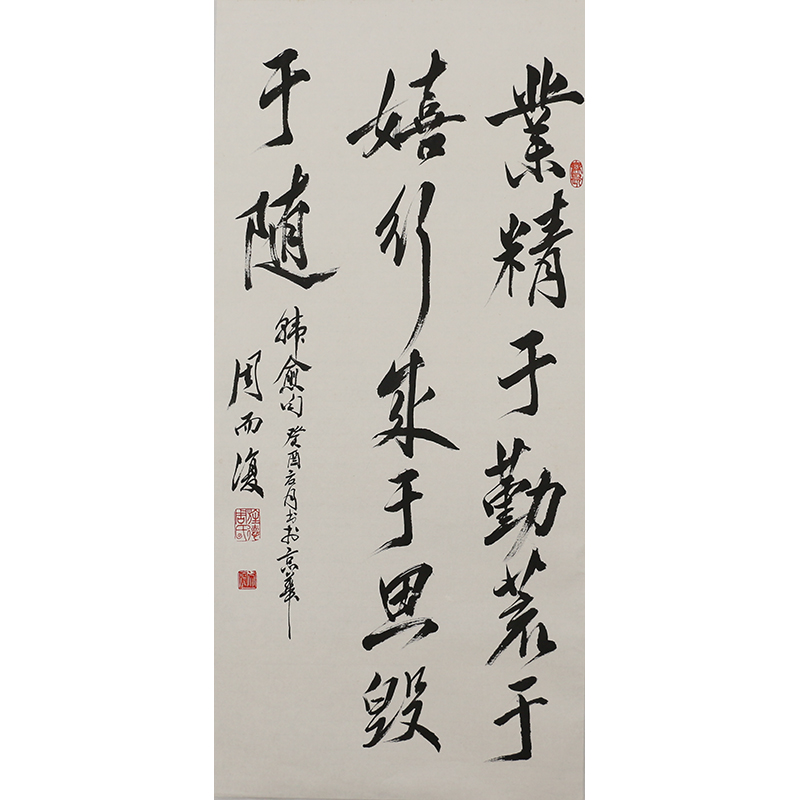 業精于勤荒于
嬉行成于思毀
于隨
韓愈句 癸酉 月书於京華
周而復